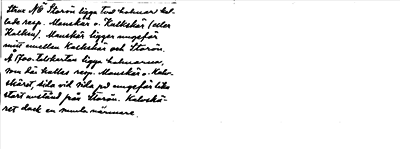 Strax NÖ Storön ligga två holmar kal-
lade resp. Manskär o. Kalkskär (eller
Kalken). Manskär ligger ungefär
mitt emellan Kalkskär och Storön.
Å 1700-talskartan ligga holmarna,
som här kallas resp. Manskär o. Kalv-
skäret, sida vid sida på ungefär lika
stort avstånd från Storön. Kalvskä-
ret dock en smula närmare.